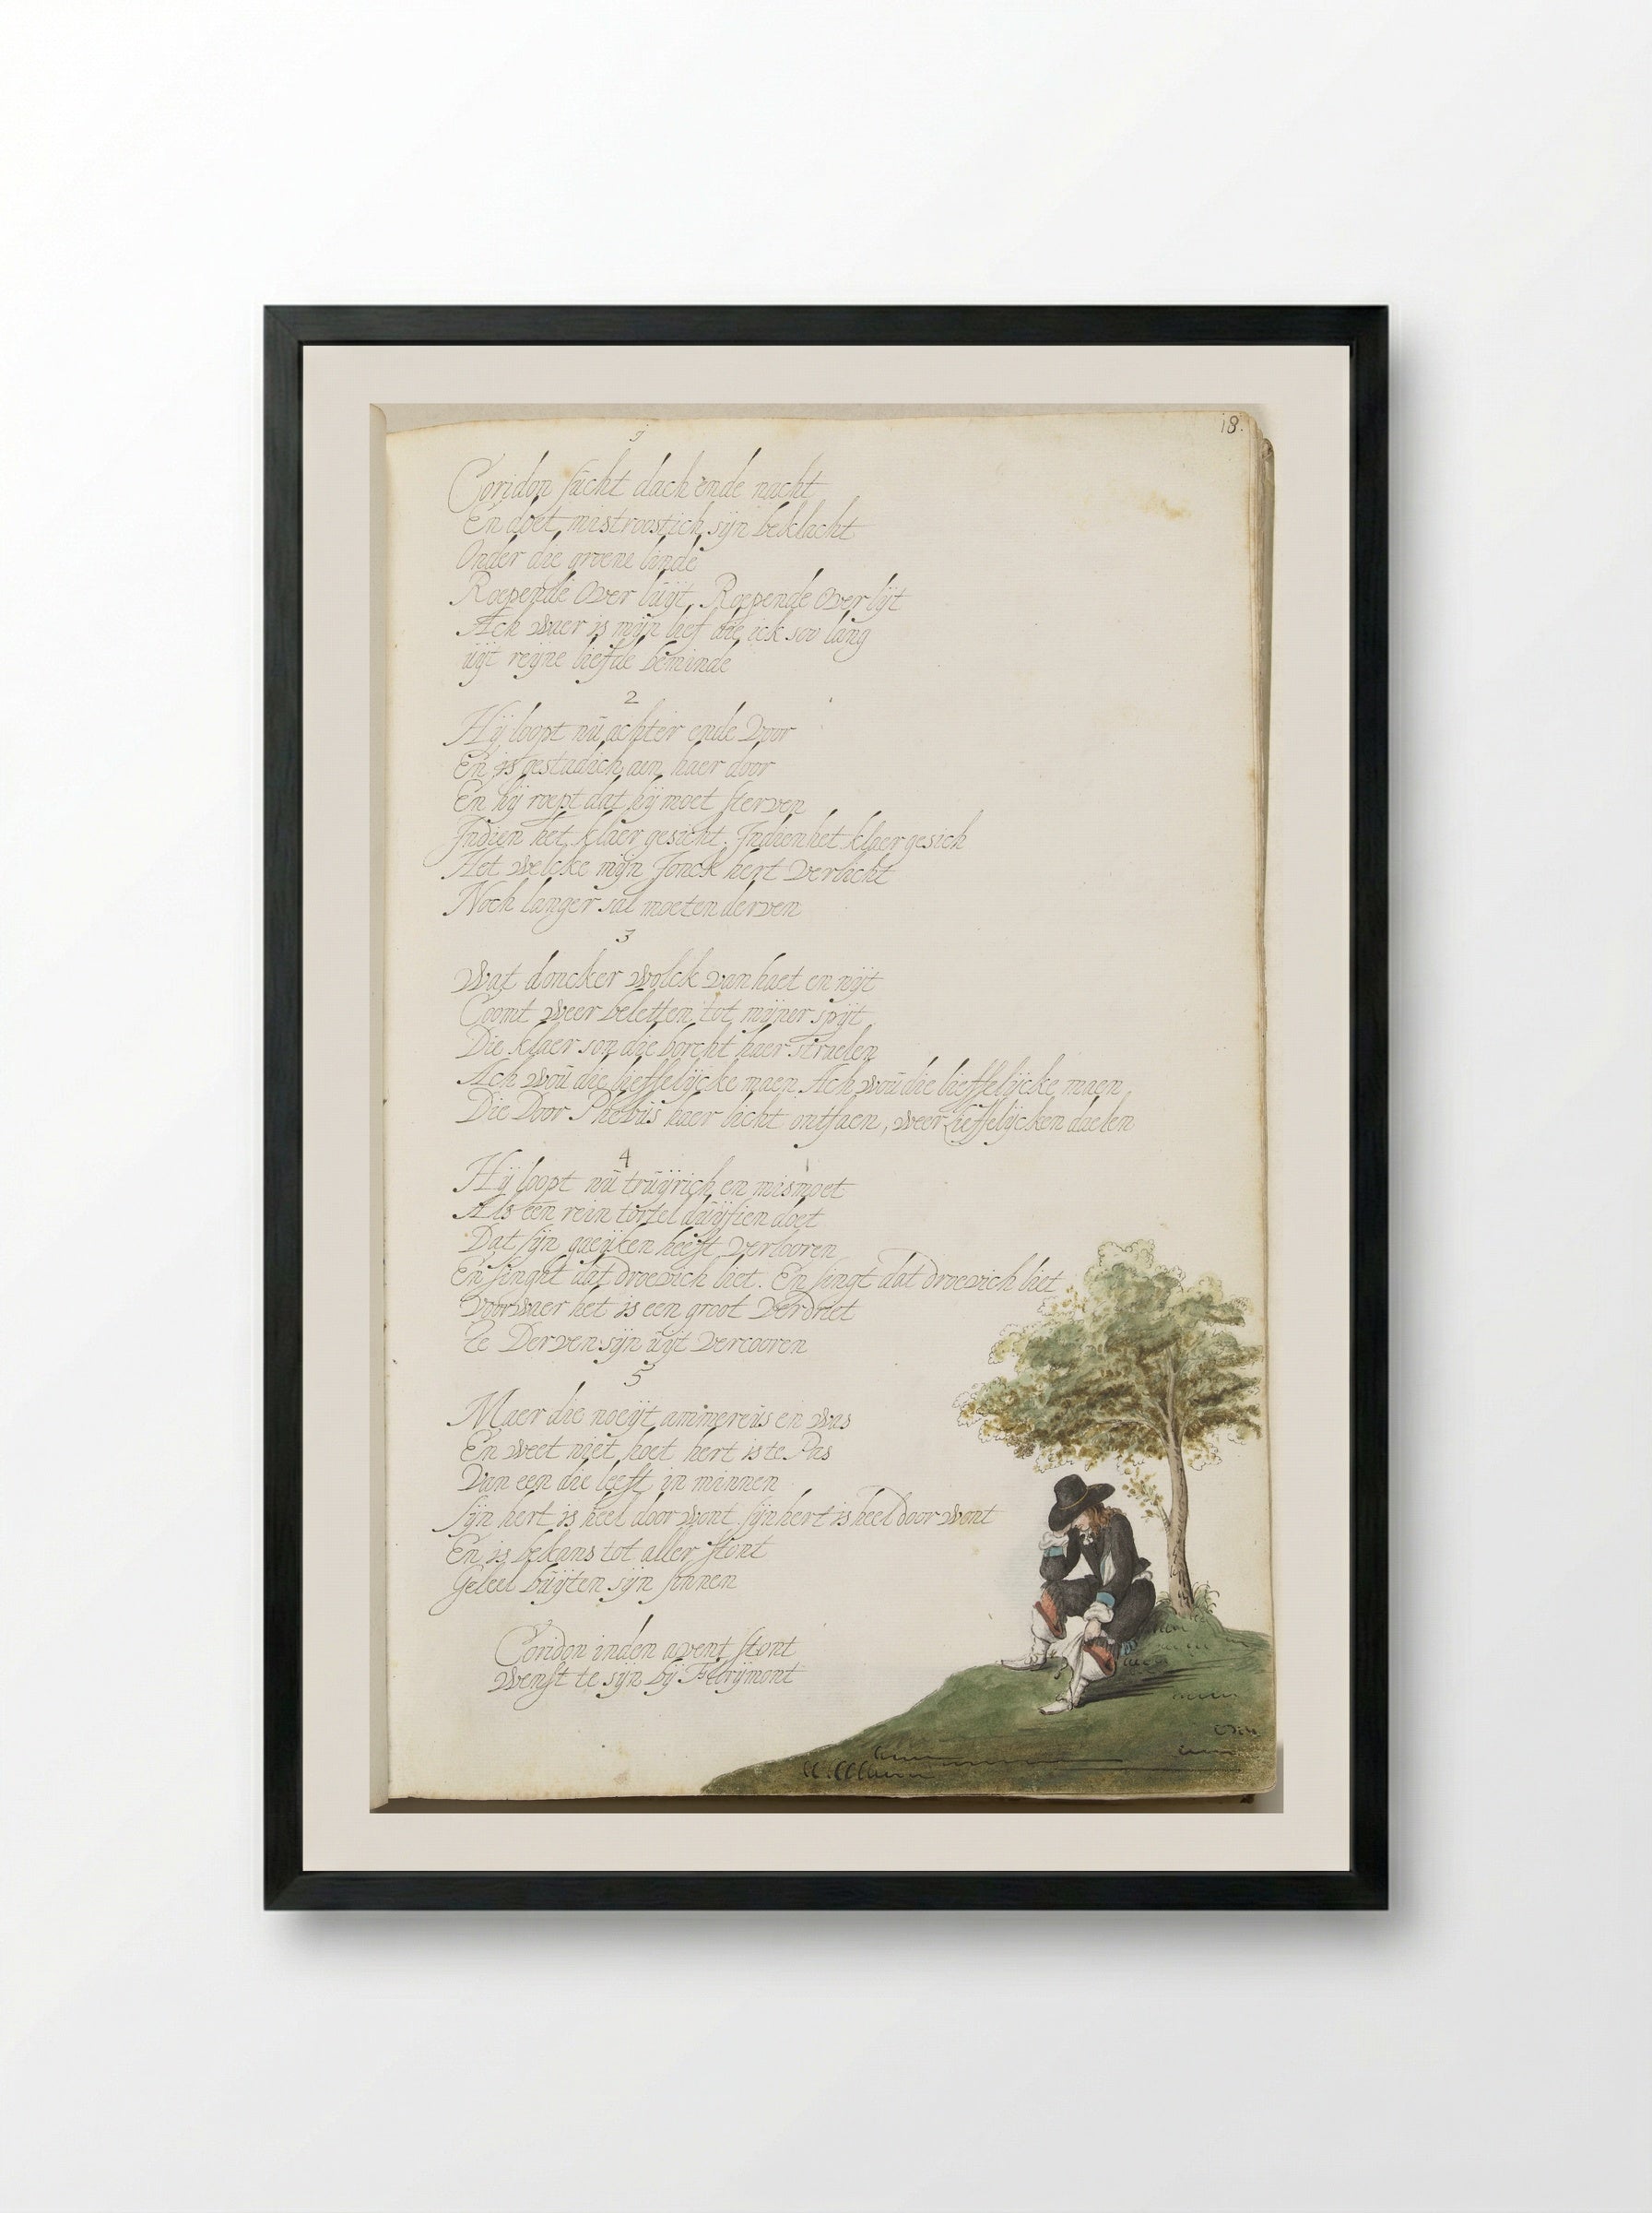 18.
1
Coridon sücht dach ende nacht
En doet mistroostich sijn beklacht
Onder die groene linde
Roepende Over lüÿt, Roepende Over lÿt
Ach waer is mijn lief die ick soo lang
üÿt reÿne liefde beminde
2
Hÿ loopt nü achter ende Voor
En is gestadich aen haer door
En hÿ roept dat hÿ moet sterven
Indien het klaer gesicht. Indien het klaer gesich
Het welcke mijn Jonck hert Verlicht
Noch langer sal moeten derven
3
Wat doncker wolck van haet en nÿt
Coomt weer beletten tot mijner spÿt
Die klaer son die borcht haer straelen
Ach woü die lieffelÿcke maen Ach woü die lieffelÿcke maen
Die Door Phebüs haer licht ontfaen, weer Lieffelÿcken daelen
4
Hÿ loopt nü trüÿrich en mismoet
Als een rein tortel düÿfien doet
Dat sijn gaeÿken heeft Verlooren
En singht dat droevich liet. En singt dat droevich liet
Voorwaer het is een groot Verdriet
te Derven sijn üÿt Vercooren
5
Maer die noeÿt ammereüs en was
En weet niet hoet hert is te Pas
Van een die leeft in minnen
Sijn hert is heel door wont sijn hert is heel door wont
En is bekans tot aller stont
Geleel büÿten sijn sinnen
Coridon inden avent stont
Wenst te sijn bÿ